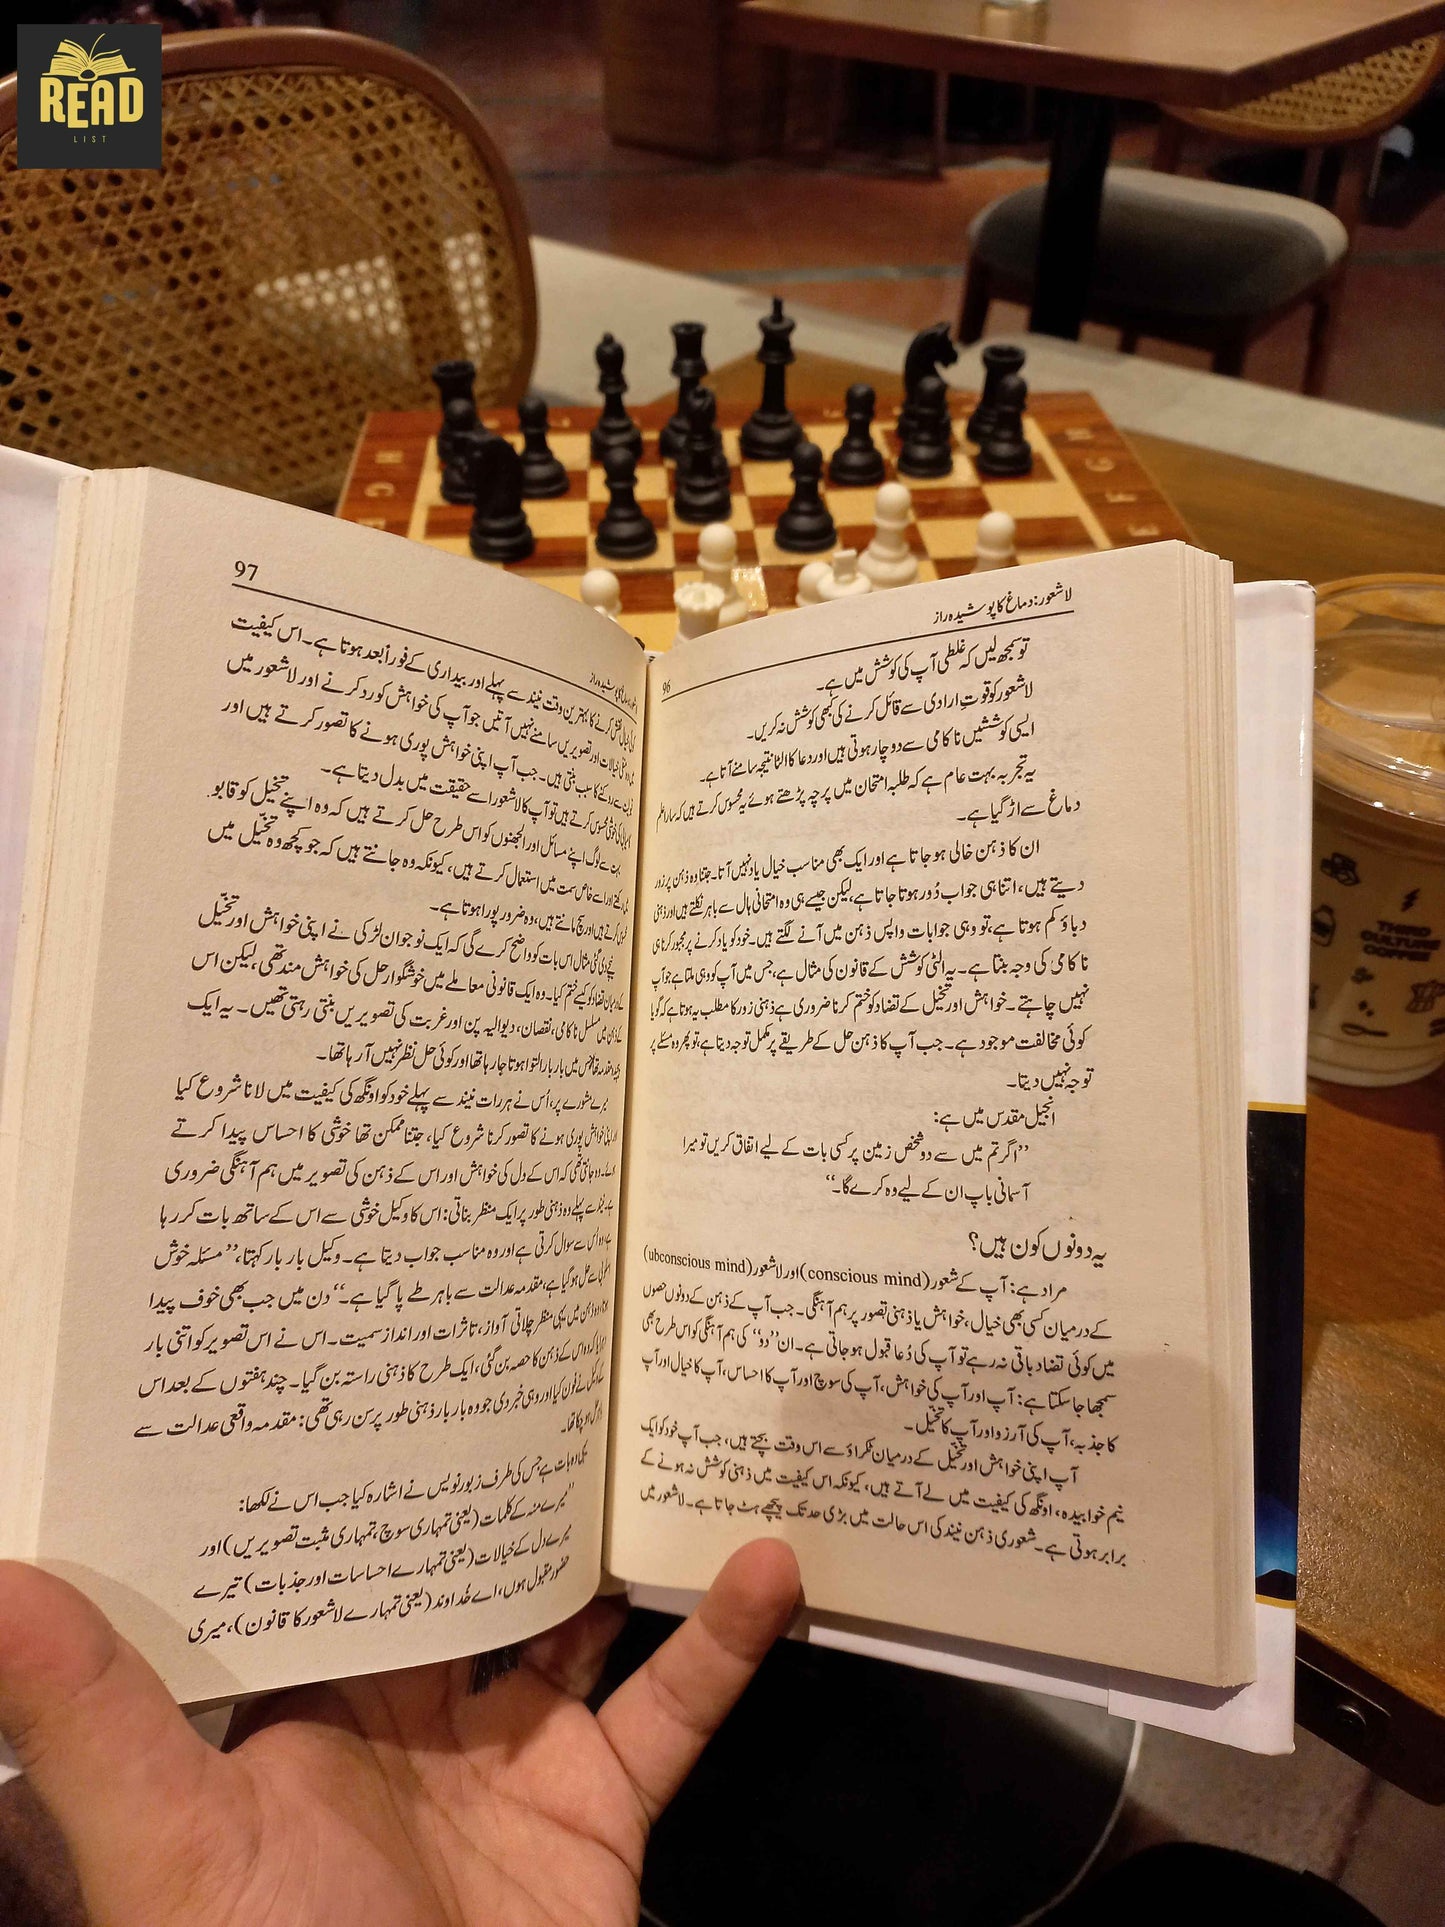 READ
LIST
لاشعور: دماغ کا پوشیدہ راز
96
تو سمجھ لیں کہ غلطی آپ کی کوشش میں ہے۔
لاشعور کو قوتِ ارادی سے قائل کرنے کی کبھی کوشش نہ کریں۔
ایسی کوششیں ناکامی سے دوچار ہوتی ہیں اور دعا کا الٹا نتیجہ سامنے آتا ہے۔
یہ تجربہ بہت عام ہے کہ طلبہ امتحان میں پرچہ پڑھتے ہوئے یہ محسوس کرتے ہیں کہ سارا علم
دماغ سے اڑ گیا ہے۔
ان کا ذہن خالی ہو جاتا ہے اور ایک بھی مناسب خیال یاد نہیں آتا۔ جتنا وہ ذہن پر زور
دیتے ہیں، اتنا ہی جواب دُور ہوتا جاتا ہے، لیکن جیسے ہی وہ امتحانی ہال سے باہر نکلتے ہیں اور ذہنی
دباؤ کم ہوتا ہے، تو وہی جوابات واپس ذہن میں آنے لگتے ہیں۔ خود کو یاد کرنے پر مجبور کرنا ہی
ناکامی کی وجہ بنتا ہے۔ یہ الٹی کوشش کے قانون کی مثال ہے، جس میں آپ کو وہی ملتا ہے جو آپ
نہیں چاہتے۔ خواہش اور تخیل کے تضاد کو ختم کرنا ضروری ہے ذہنی زور کا مطلب یہ ہوتا ہے کہ گویا
کوئی مخالفت موجود ہے۔ جب آپ کا ذہن حل کے طریقے پر مکمل توجہ دیتا ہے، تو پھر وہ مسئلے پر
توجہ نہیں دیتا۔
انجیل مقدس میں ہے:
”اگر تم میں سے دو شخص زمین پر کسی بات کے لیے اتفاق کریں تو میرا
آسمانی باپ ان کے لیے وہ کرے گا۔“
یہ دونوں کون ہیں؟
مراد ہے: آپ کے شعور (conscious mind) اور لاشعور (ubconscious mind)
کے درمیان کسی بھی خیال، خواہش یا ذہنی تصور پر ہم آہنگی۔ جب آپ کے ذہن کے دونوں حصوں
میں کوئی تضاد باقی نہ رہے تو آپ کی دُعا قبول ہو جاتی ہے۔ ان ”دو“ کی ہم آہنگی کو اس طرح بھی
سمجھا جا سکتا ہے: آپ اور آپ کی خواہش، آپ کی سوچ اور آپ کا احساس، آپ کا خیال اور آپ
کا جذبہ، آپ کی آرزو اور آپ کا تخیّل۔
آپ اپنی خواہش اور تخیّل کے درمیان ٹکراؤ سے اس وقت بچتے ہیں، جب آپ خود کو ایک
نیم خوابیدہ، اونگھ کی کیفیت میں لے آتے ہیں، کیونکہ اس کیفیت میں ذہنی کوشش نہ ہونے کے
برابر ہوتی ہے۔ شعوری ذہن نیند کی اس حالت میں بڑی حد تک پیچھے ہٹ جاتا ہے۔ لاشعور میں
97
کرنے کا بہترین وقت نیند سے پہلے اور بیداری کے فوراً بعد ہوتا ہے۔ اس کیفیت
خیالات اور تصویریں سامنے نہیں آتیں جو آپ کی خواہش کو رد کرنے اور لاشعور میں
روکنے کا سبب بنتی ہیں۔ جب آپ اپنی خواہش پوری ہونے کا تصور کرتے ہیں اور
کی خوشی محسوس کرتے ہیں تو آپ کا لاشعور اسے حقیقت میں بدل دیتا ہے۔
بہت سے لوگ اپنے مسائل اور الجھنوں کو اس طرح حل کرتے ہیں کہ وہ اپنے تخیل کو قابو
اور اسے خاص سمت میں استعمال کرتے ہیں، کیونکہ وہ جانتے ہیں کہ جو کچھ وہ تخیّل میں
کرتے ہیں اور سچ مانتے ہیں، وہ ضرور پورا ہوتا ہے۔
نیچے دی گئی مثال اس بات کو واضح کرے گی کہ ایک نوجوان لڑکی نے اپنی خواہش اور تخیّل
کے درمیان تضاد کو کیسے ختم کیا۔ وہ ایک قانونی معاملے میں خوشگوار حل کی خواہش مند تھی، لیکن اس
کے ذہن میں مسلسل ناکامی، نقصان، دیوالیہ پن اور غربت کی تصویریں بنتی رہتی تھیں۔ یہ ایک
مقدمہ تھا جس میں بار بار التوا ہوتا جا رہا تھا اور کوئی حل نظر نہیں آ رہا تھا۔
میرے مشورے پر، اُس نے ہر رات نیند سے پہلے خود کو اونگھ کی کیفیت میں لانا شروع کیا
اور اپنی خواہش پوری ہونے کا تصور کرنا شروع کیا، جتنا ممکن تھا خوشی کا احساس پیدا کرتے
ہوئے۔ وہ جانتی تھی کہ اس کے دل کی خواہش اور اس کے ذہن کی تصویر میں ہم آہنگی ضروری
ہے۔ پہلے وہ ذہنی طور پر ایک منظر بناتی: اس کا وکیل خوشی سے اس کے ساتھ بات کر رہا
ہے، وہ اُس سے سوال کرتی ہے اور وہ مناسب جواب دیتا ہے۔ وکیل بار بار کہتا، ”مسئلہ خوش
اسلوبی سے حل ہو گیا ہے، مقدمہ عدالت سے باہر طے پا گیا ہے۔“ دن میں جب بھی خوف پیدا
ہوتا، وہ ذہن میں یہی منظر چلاتی آواز، تاثرات اور انداز سمیت۔ اس نے اس تصویر کو اتنی بار
دہرایا کہ وہ اس کے ذہن کا حصہ بن گئی، ایک طرح کا ذہنی راستہ بن گیا۔ چند ہفتوں کے بعد اس
کے وکیل نے فون کیا اور وہی خبر دی جو وہ بار بار ذہنی طور پر سن رہی تھی: مقدمہ واقعی عدالت سے
باہر حل ہو چکا تھا۔
یہی وہ بات ہے جس کی طرف زبور نویس نے اشارہ کیا جب اس نے لکھا:
”میرے منہ کے کلمات (یعنی تمہاری سوچ، تمہاری مثبت تصویریں) اور
میرے دل کے خیالات (یعنی تمہارے احساسات اور جذبات) تیرے
حضور مقبول ہوں، اے خُداوند (یعنی تمہارے لاشعور کا قانون)، میری
THIRD
CULTURE
COFFEE